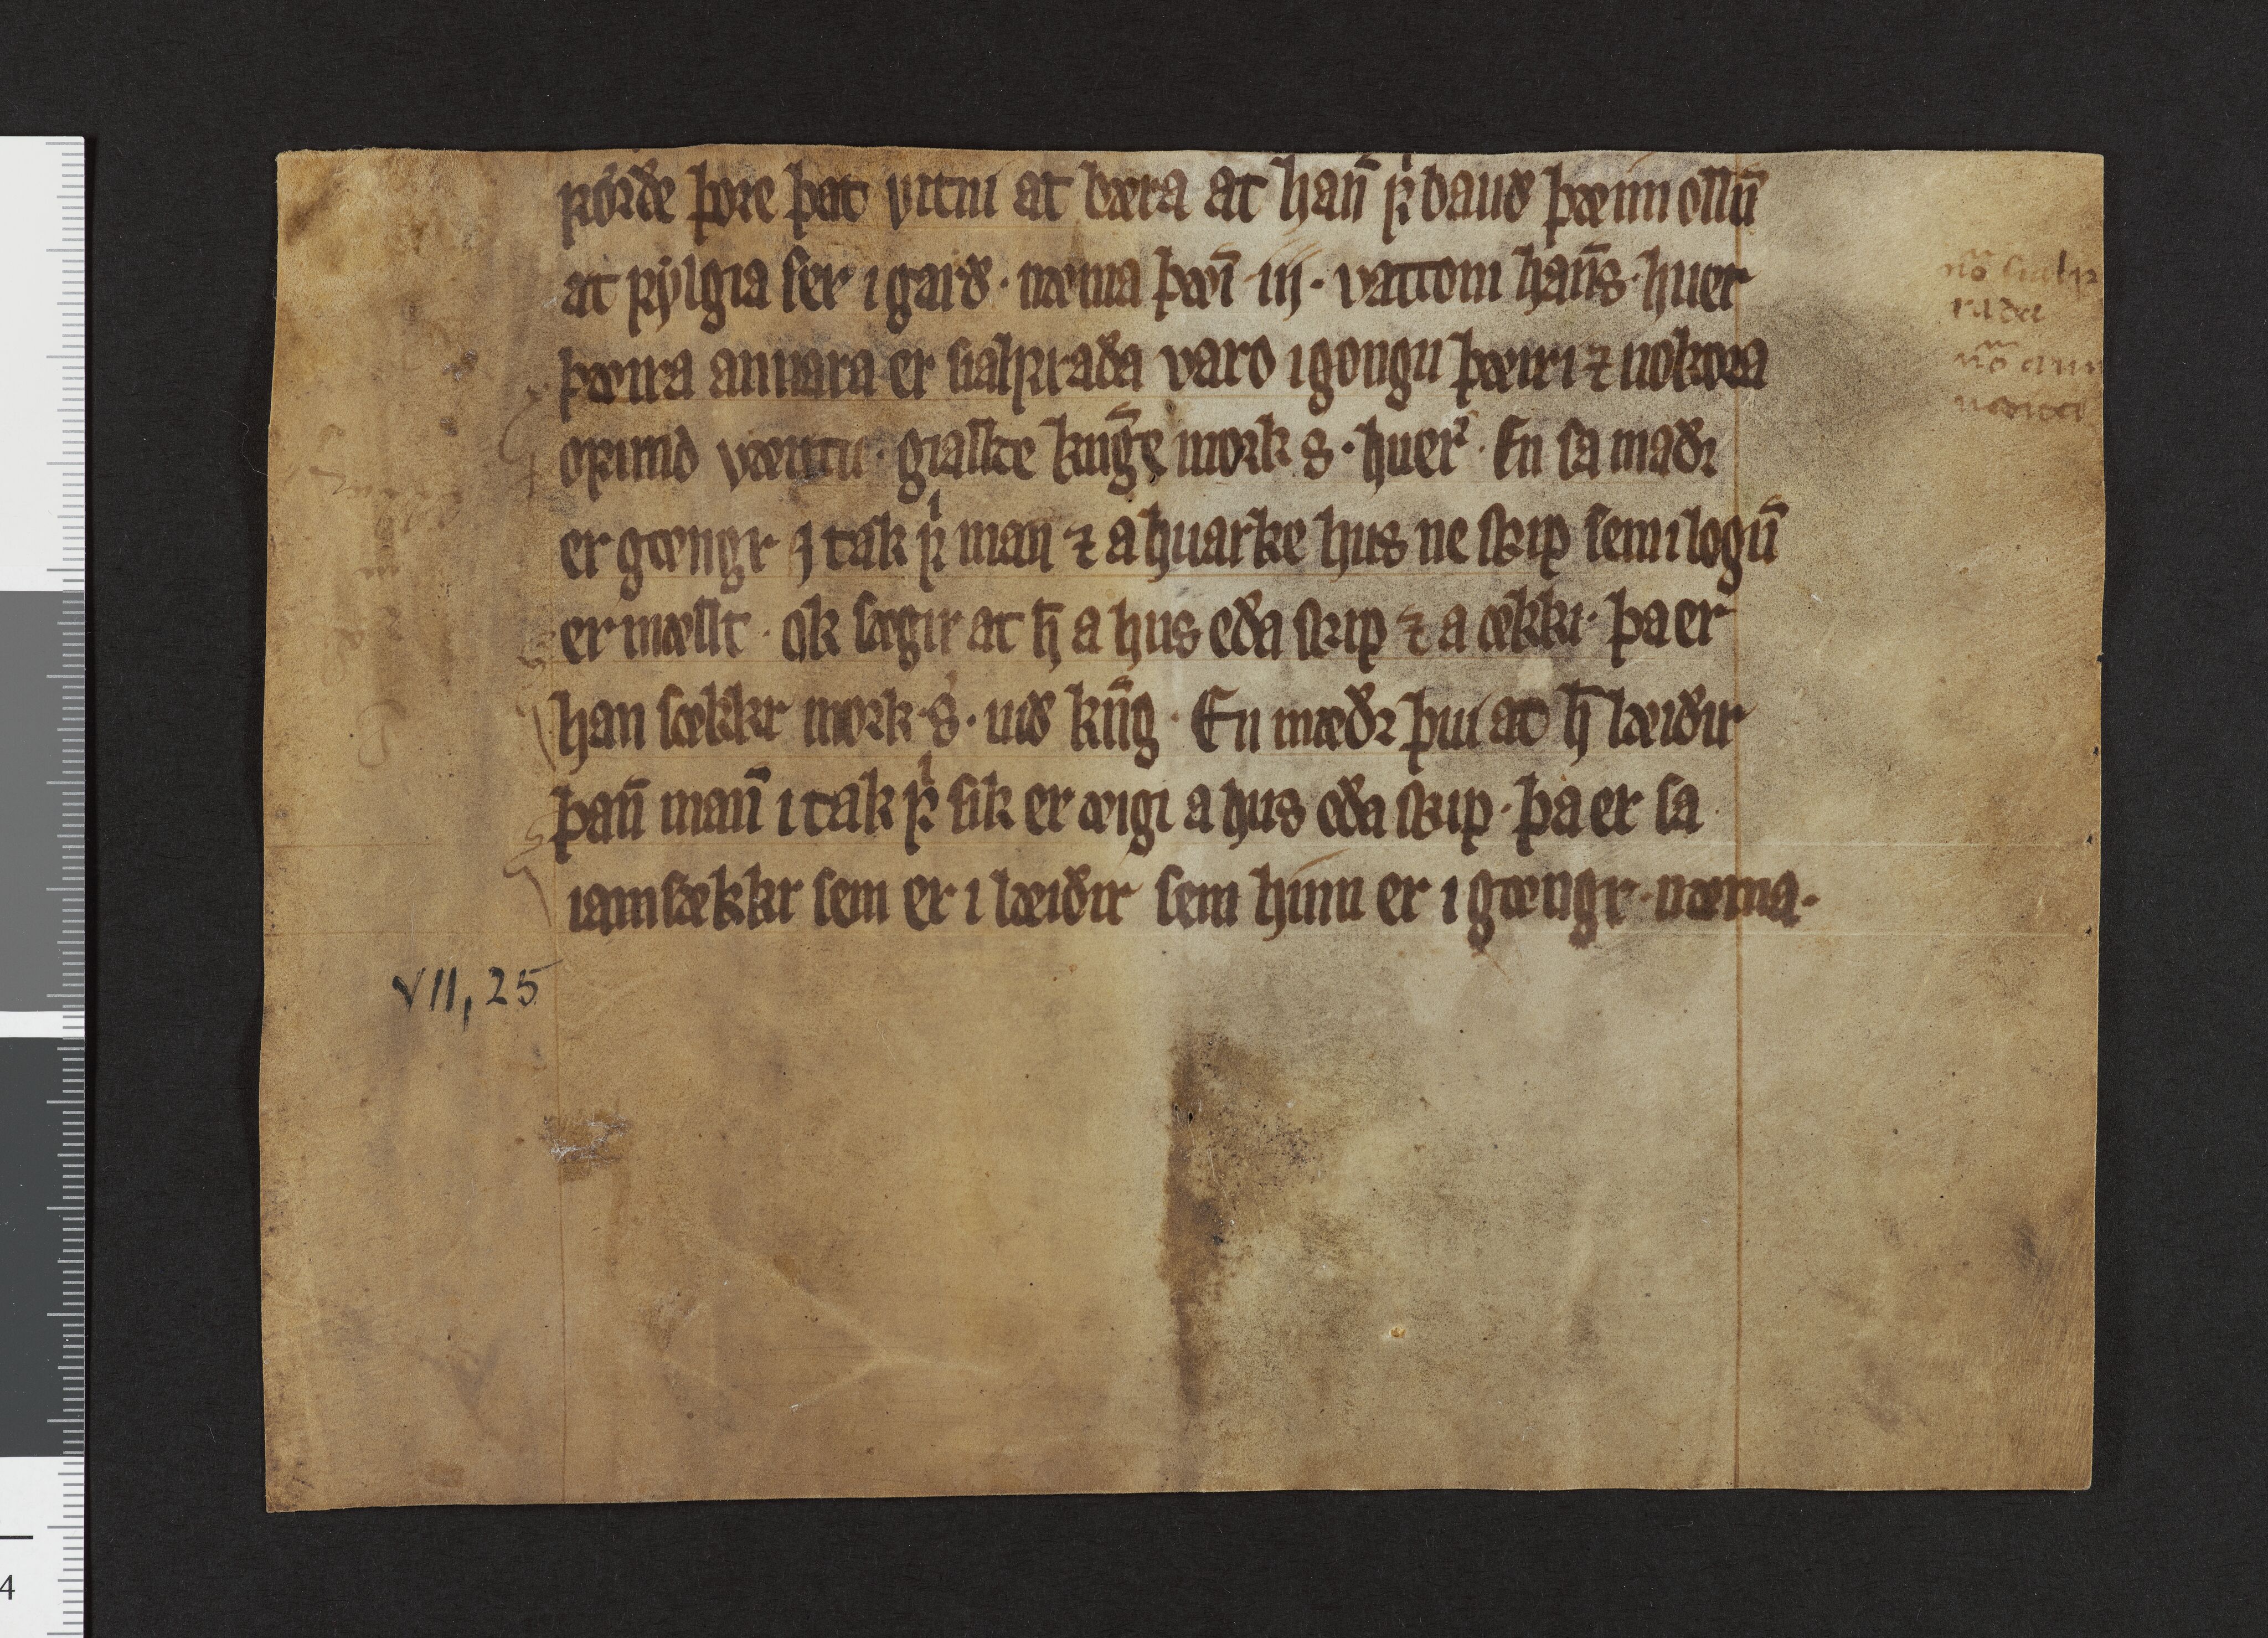 ꝼorðe þore þat vitni at bæra at han̄ ꝼͥ bauð þæim ollū
at ꝼylgia ser i garð · næma þæī · iij · vattom han̄s · huer
þæira annara er sialꝼraða varo i gongu þæiri ⁊ nokora
oꝼund væittu · giallde kun̄ge mork s · huerᷣ · En sa maðꝛ
er gængr j tak ꝼͥ man ⁊ a huarke hus ne skip sem i logū
er mællt · ok sægir at h̄ a hus eða skip ⁊ a ækki · þa er
han sækkr mork · s · uið kun̄g · En mæðꝛ þui at h̄ læiðir
þan̄ man̄ i tak ꝼͥ sik er æigi a hus eða skip · þa er sa
iamsækkr sem er i læiðir sem hinn er i gængr · næma ·
nō sialꝼ
raða
nō ann
VII, 25